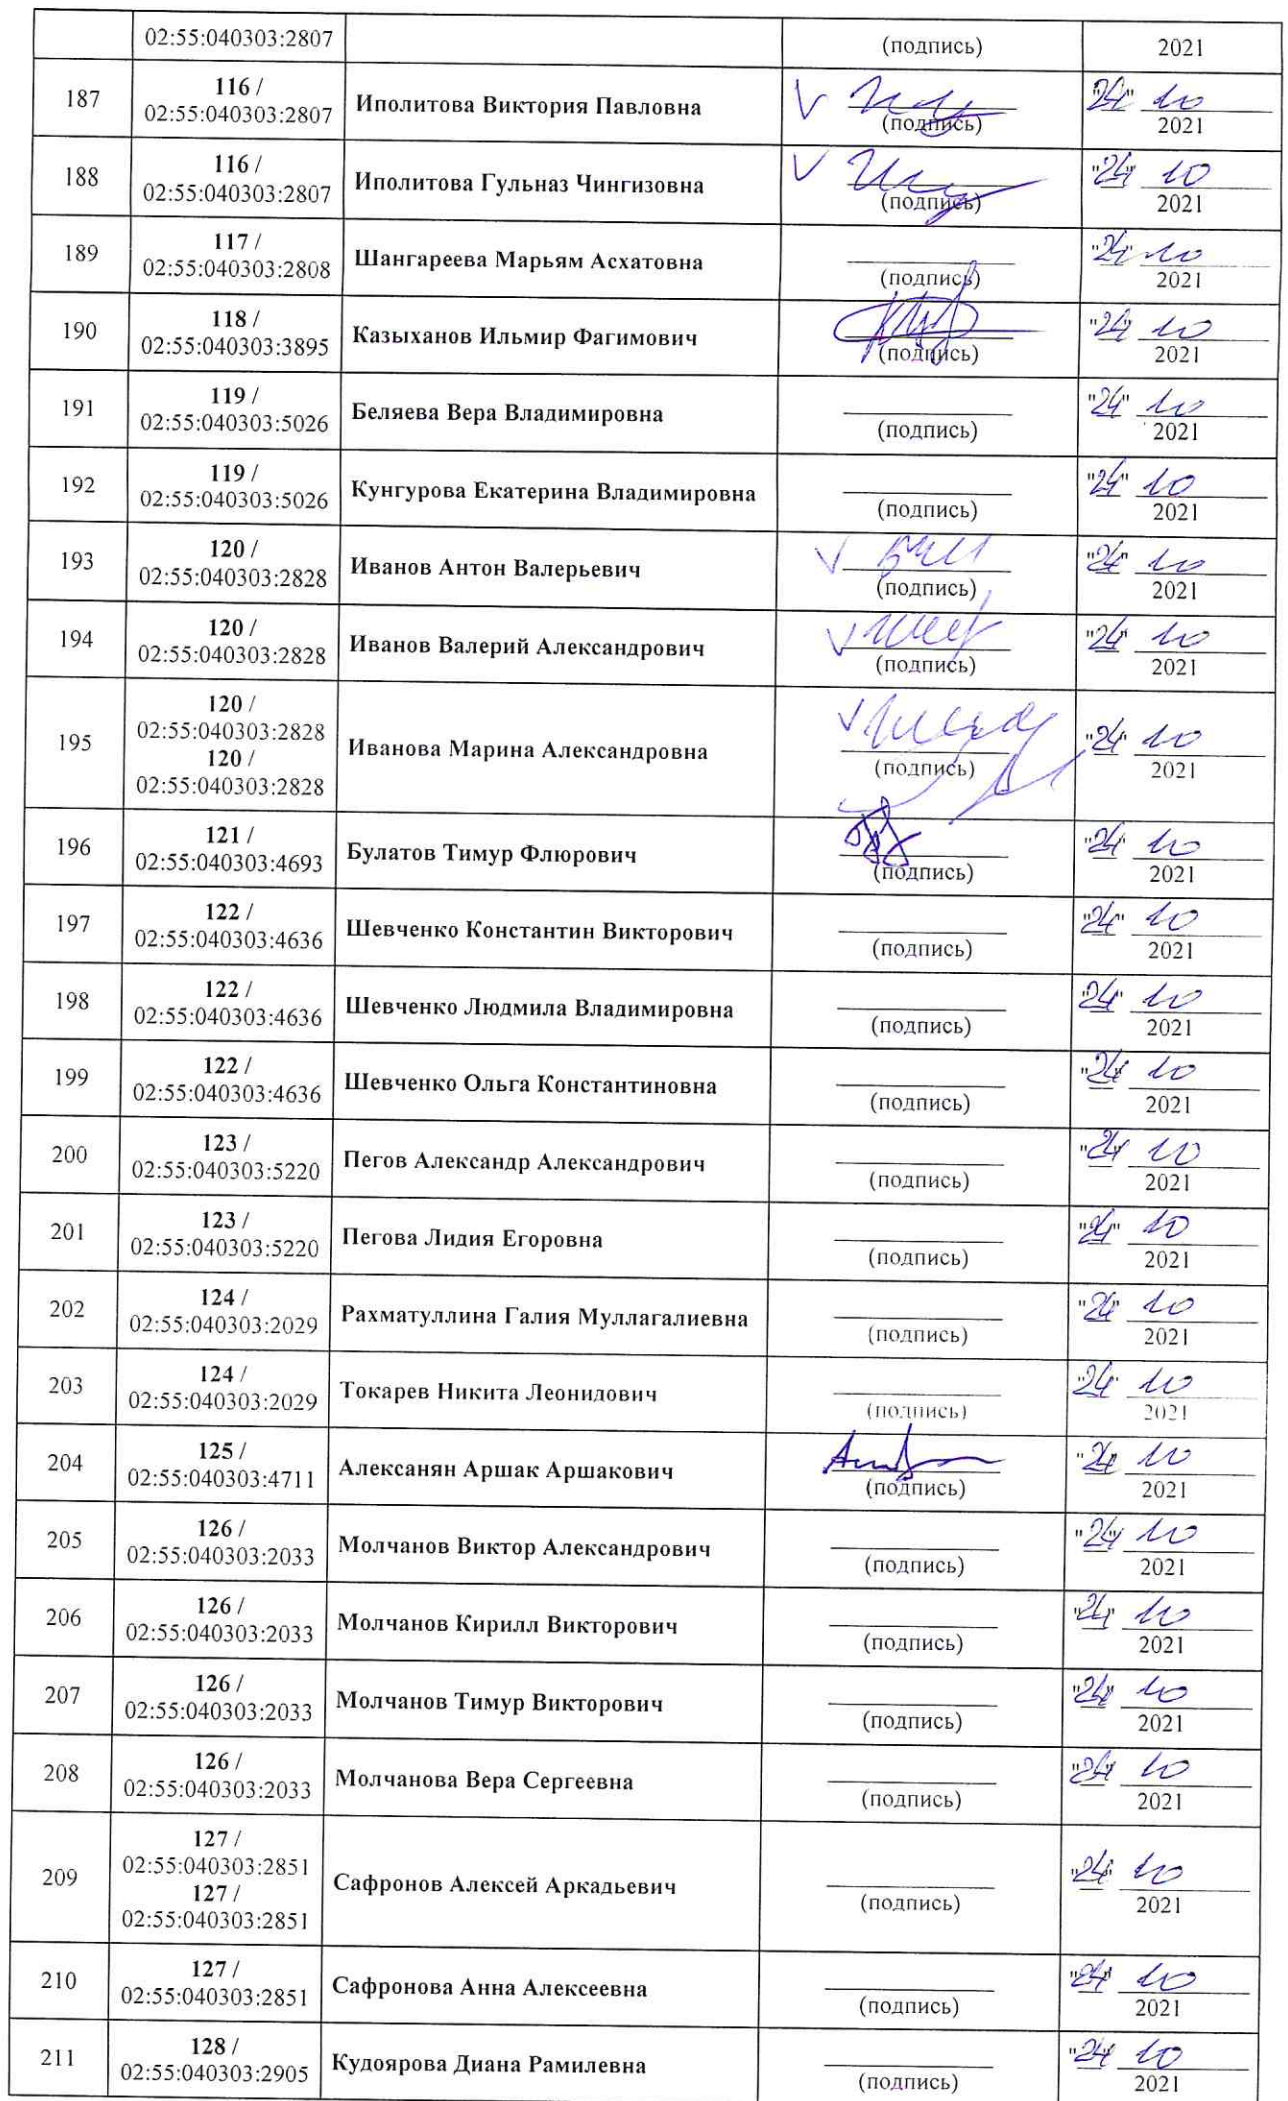 02:55:040303:2807 (подпись) 2021
187 116 / 02:55:040303:2807 Иполитова Виктория Павловна (подпись) "24" 10 2021
188 116 / 02:55:040303:2807 Иполитова Гульназ Чингизовна (подпись) "24" 10 2021
189 117 / 02:55:040303:2808 Шангареева Марьям Асхатовна (подпись) "24" 10 2021
190 118 / 02:55:040303:3895 Казыханов Ильмир Фагимович (подпись) "24" 10 2021
191 119 / 02:55:040303:5026 Беляева Вера Владимировна (подпись) "24" 10 2021
192 119 / 02:55:040303:5026 Кунгурова Екатерина Владимировна (подпись) "24" 10 2021
193 120 / 02:55:040303:2828 Иванов Антон Валерьевич (подпись) "24" 10 2021
194 120 / 02:55:040303:2828 Иванов Валерий Александрович (подпись) "24" 10 2021
195 120 / 02:55:040303:2828 120 / 02:55:040303:2828 Иванова Марина Александровна (подпись) "24" 10 2021
196 121 / 02:55:040303:4693 Булатов Тимур Флюрович (подпись) "24" 10 2021
197 122 / 02:55:040303:4636 Шевченко Константин Викторович (подпись) "24" 10 2021
198 122 / 02:55:040303:4636 Шевченко Людмила Владимировна (подпись) "24" 10 2021
199 122 / 02:55:040303:4636 Шевченко Ольга Константиновна (подпись) "24" 10 2021
200 123 / 02:55:040303:5220 Пегов Александр Александрович (подпись) "24" 10 2021
201 123 / 02:55:040303:5220 Пегова Лидия Егоровна (подпись) "24" 10 2021
202 124 / 02:55:040303:2029 Рахматуллина Галия Муллагалиевна (подпись) "24" 10 2021
203 124 / 02:55:040303:2029 Токарев Никита Леонидович (подпись) "24" 10 2021
204 125 / 02:55:040303:4711 Алексанян Аршак Аршакович (подпись) "24" 10 2021
205 126 / 02:55:040303:2033 Молчанов Виктор Александрович (подпись) "24" 10 2021
206 126 / 02:55:040303:2033 Молчанов Кирилл Викторович (подпись) "24" 10 2021
207 126 / 02:55:040303:2033 Молчанов Тимур Викторович (подпись) "24" 10 2021
208 126 / 02:55:040303:2033 Молчанова Вера Сергеевна (подпись) "24" 10 2021
209 127 / 02:55:040303:2851 127 / 02:55:040303:2851 Сафронов Алексей Аркадьевич (подпись) "24" 10 2021
210 127 / 02:55:040303:2851 Сафронова Анна Алексеевна (подпись) "24" 10 2021
211 128 / 02:55:040303:2905 Кудоярова Диана Рамилевна (подпись) "24" 10 2021